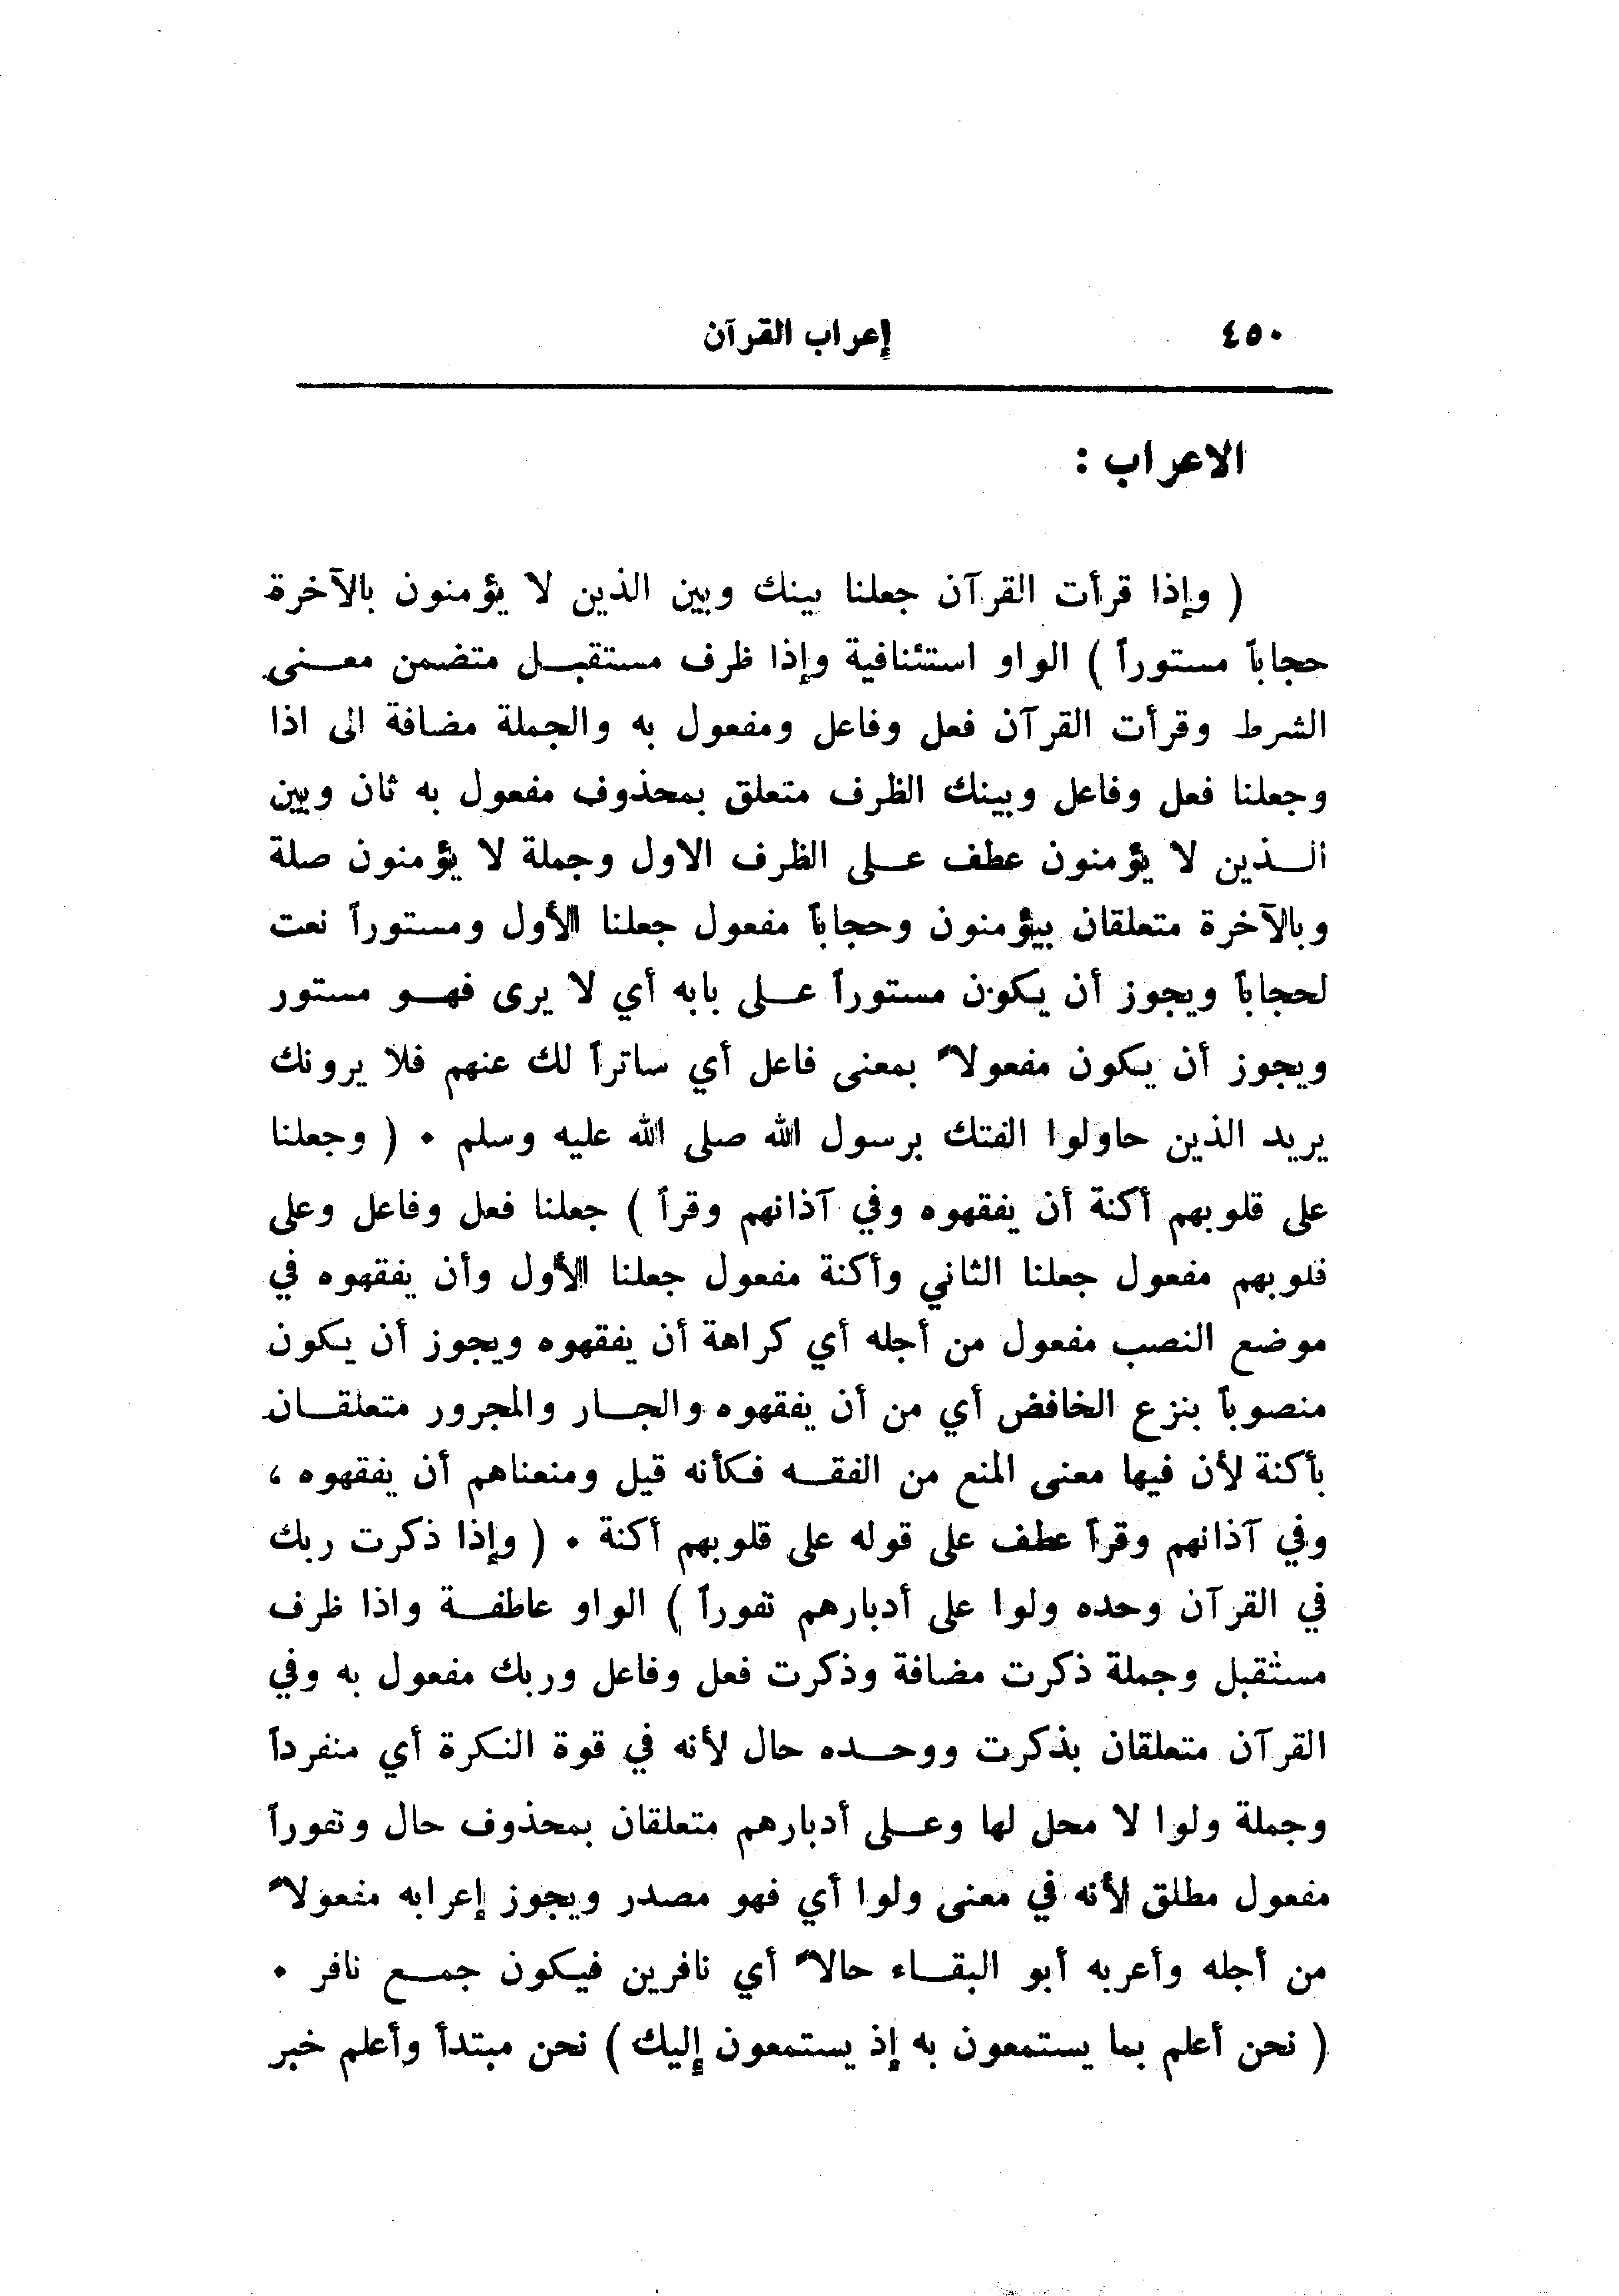 ٤٥٠ إعراب القرآن
الاعراب :
( وإذا قرأت القرآن جعلنا بينك وبين الذين لا يؤمنون بالآخرة
حجاباً مستوراً ) الواو استئنافية وإذا ظرف مستقبل متضمن معنى
الشرط وقرأت القرآن فعل وفاعل ومفعول به والجملة مضافة الى اذا
وجعلنا فعل وفاعل وبينك الظرف متعلق بمحذوف مفعول به ثان وبين
الذين لا يؤمنون عطف على الظرف الاول وجملة لا يؤمنون صلة
وبالآخرة متعلقان بيؤمنون وحجاباً مفعول جعلنا الأول ومستوراً نعت
لحجاباً ويجوز أن يكون مستوراً على بابه أي لا يرى فهو مستور
ويجوز أن يكون مفعولاً بمعنى فاعل أي ساتراً لك عنهم فلا يرونك
يريد الذين حاولوا الفتك برسول الله صلى الله عليه وسلم . ( وجعلنا
على قلوبهم أكنة أن يفقهوه وفي آذانهم وقراً ) جعلنا فعل وفاعل وعلى
قلوبهم مفعول جعلنا الثاني وأكنة مفعول جعلنا الأول وأن يفقهوه في
موضع النصب مفعول من أجله أي كراهة أن يفقهوه ويجوز أن يكون
منصوباً بنزع الخافض أي من أن يفقهوه والجار والمجرور متعلقان
بأكنة لأن فيها معنى المنع من الفقه فكأنه قيل ومنعناهم أن يفقهوه ،
وفي آذانهم وقراً عطف على قوله على قلوبهم أكنة . ( وإذا ذكرت ربك
في القرآن وحده ولوا على أدبارهم نفوراً ) الواو عاطفة واذا ظرف
مستقبل وجملة ذكرت مضافة وذكرت فعل وفاعل وربك مفعول به وفي
القرآن متعلقان بذكرت ووحده حال لأنه في قوة النكرة أي منفرداً
وجملة ولوا لا محل لها وعلى أدبارهم متعلقان بمحذوف حال ونفوراً
مفعول مطلق لأنه في معنى ولوا أي فهو مصدر ويجوز إعرابه مفعولاً
من أجله وأعربه أبو البقاء حالاً أي نافرين فيكون جمع نافر .
( نحن أعلم بما يستمعون به إذ يستمعون إليك ) نحن مبتدأ وأعلم خبر